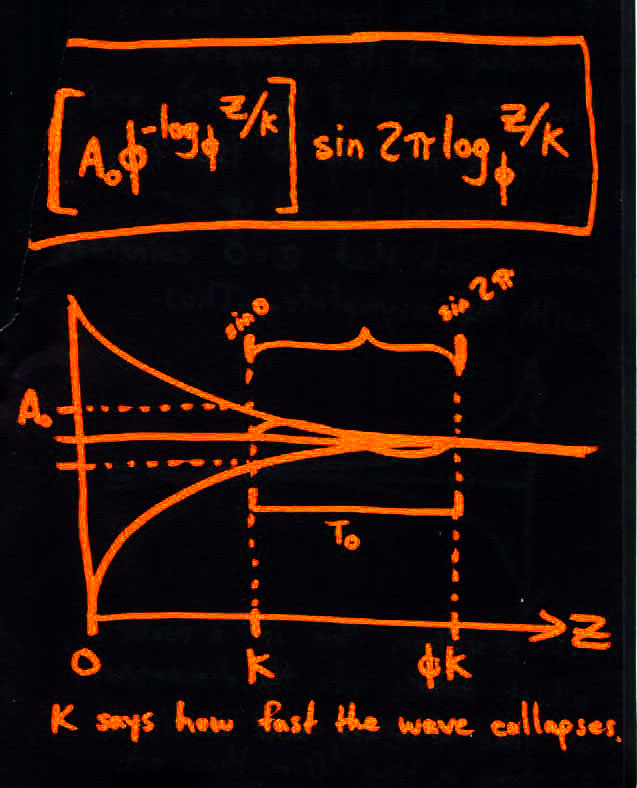 [A₀ϕ^(-log_ϕ z/k)] sin 2π log_ϕ z/k
sin 0
sin 2π
A₀
T₀
0
K
ϕK
Z
K says how fast the wave collapses.